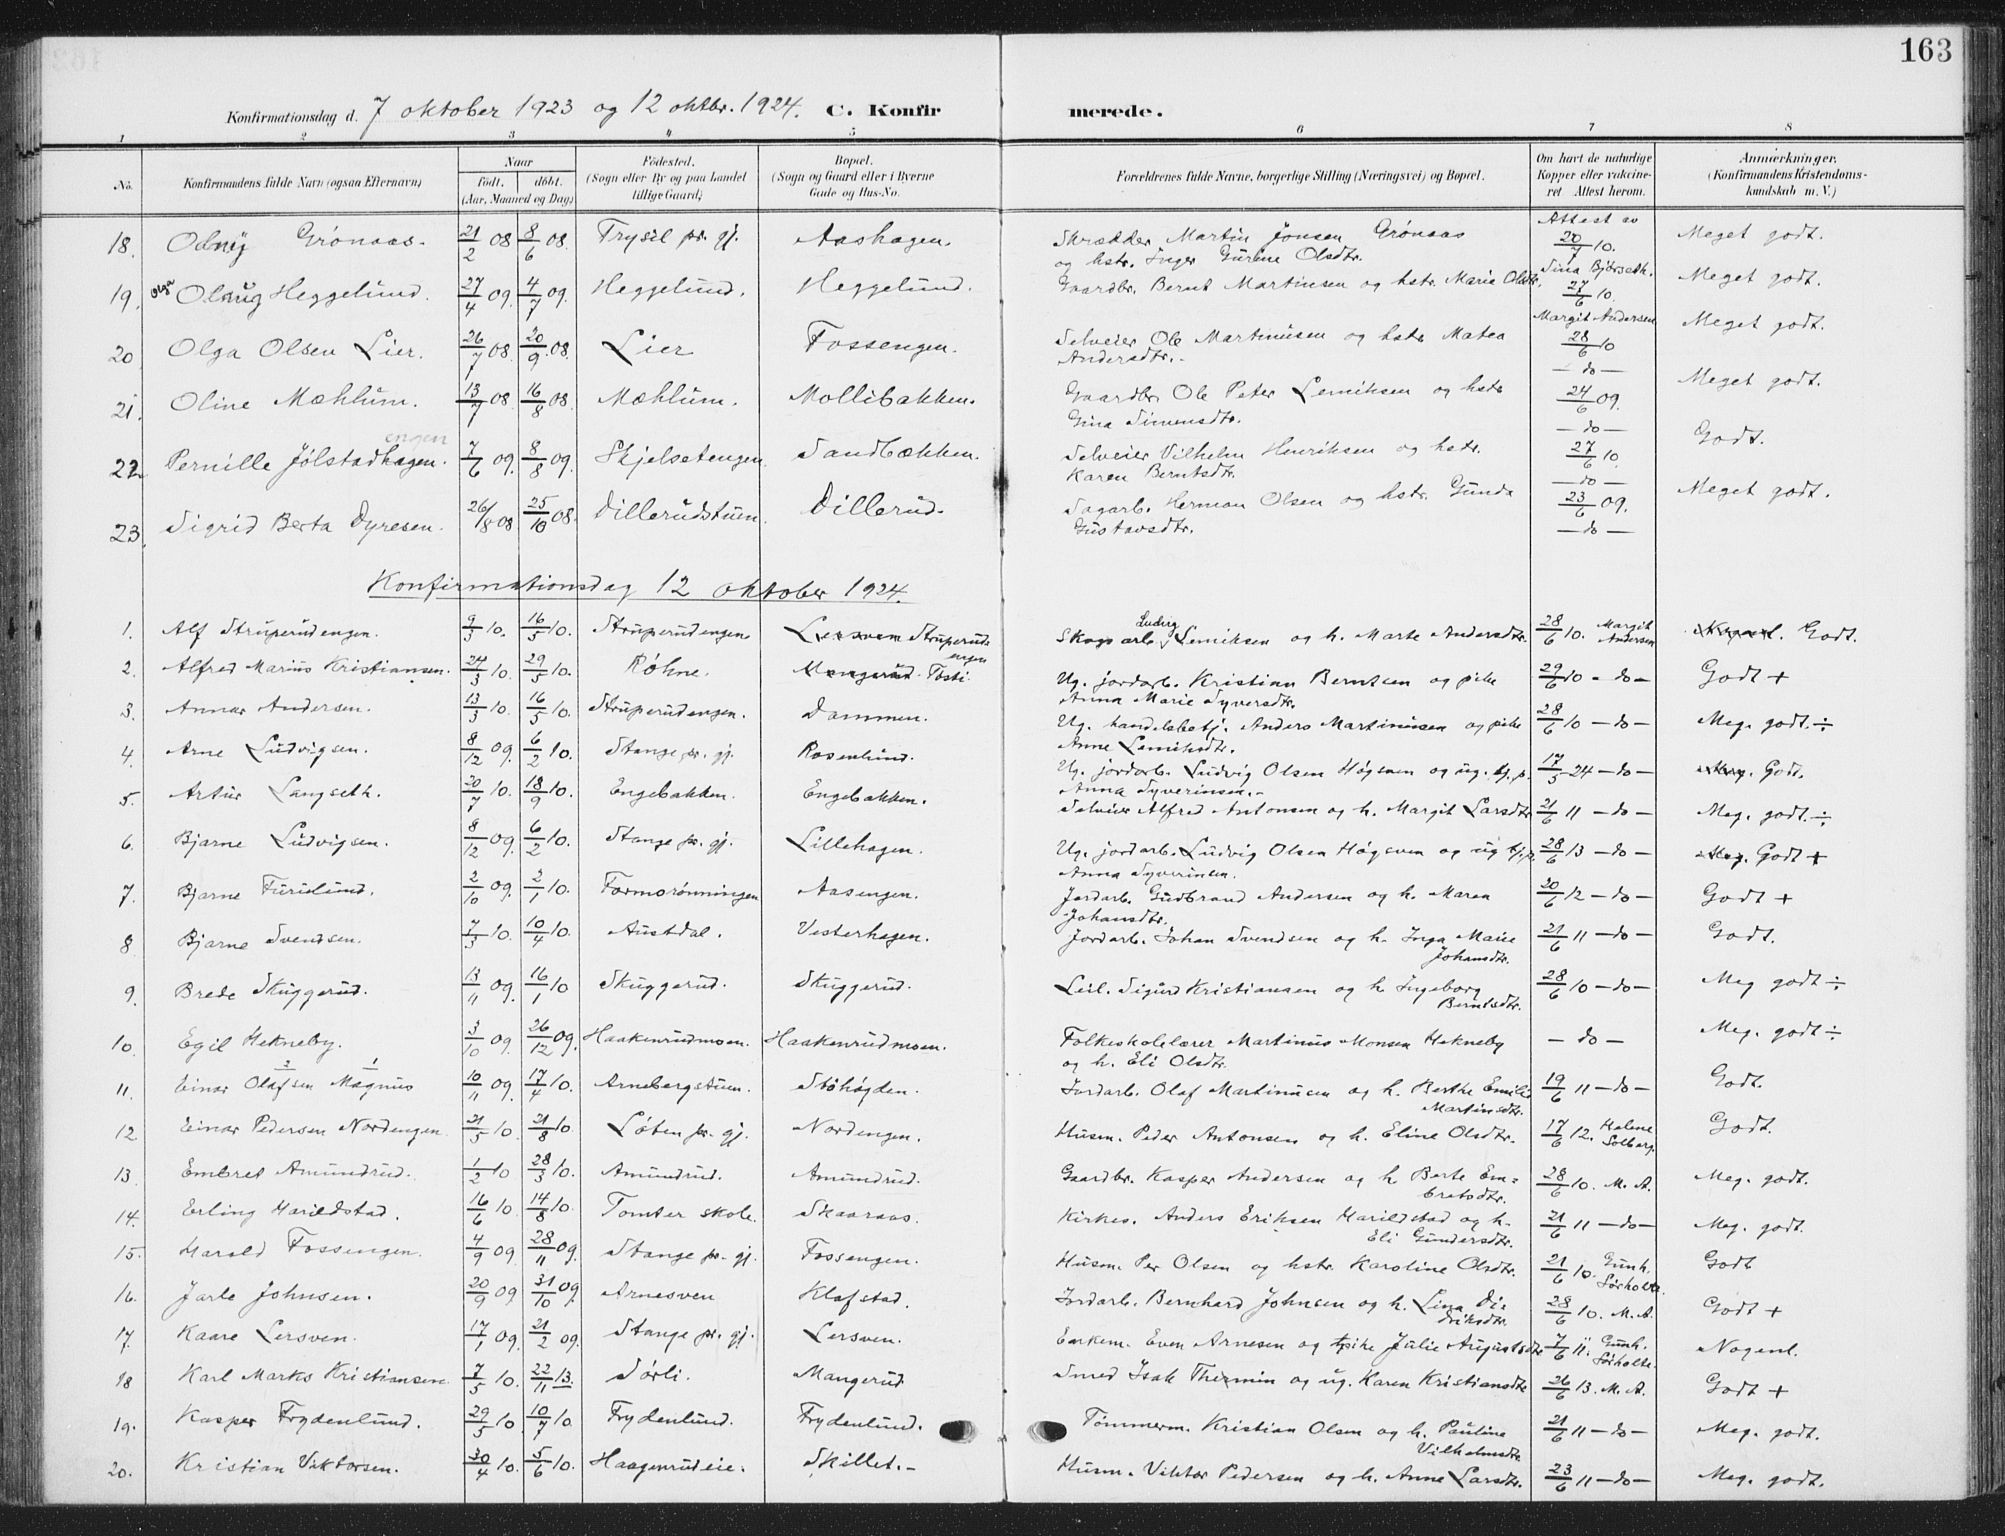 163
Konfirmationsdag d. 7 oktober 1923 og 12 oktbr. 1924. C. Konfirmerede.
1 2 3 4 5 6 7 8
No. Konfirmandens fulde Navn (ogsaa Efternavn) Naar födt. döbt. (Aar, Maaned og Dag) Födested. (Sogn eller By og paa Landet tillige Gaard) Bopæl. (Sogn og Gaard eller i Byerne Gade og Hus-No. Forældrenes fulde Navne, borgerlige Stilling (Næringsvei) og Bopæl. Om havt de naturlige Kopper eller vakcineret Attest herom. Anmærkninger. (Konfirmandens Kristendomskundskab m. V.)
18. Odny Grönaas. 21/2 08 8/6 08. Trysil pr. gj. Aashagen. Skrædder Martin Jonsen Grönaas og hstr. Inger Gurine Olsdtr. Attest av 20/7 10. Meget godt.
19. Olga Olaug Heggelund. 27/4 09. 4/7 09. Heggelund. Heggelund. Gaardbr. Bernt Martinsen og hstr. Marie Olsdtr. Sina Björseth. 27/6 10. Meget godt.
20 Olga Olsen Lier. 26/7 08. 20/9 08. Lier Fossengen. Selveier Ole Martinusen og hstr Matea Andersdtr. Margit Andersen 28/6 10 — do — Meget godt.
21. Oline Mæhlum. 13/7 08 16/8 08. Mæhlum. Mollibakken. Gaardbr. Ole Peter Lemiksen og hstr Gina Simensdtr. 24/6 09. — do — Meget godt.
22. Pernille Jölstadhagen. engen 7/6 09. 8/8 09. Skjelsetengen Sandbækken. Selveier Vilhelm Henriksen og hstr. Karen Berntsdtr. 27/6 10. — do — Godt.
23. Sigrid Berta Dyresen. 26/8 08 25/10 08. Dillerudstuen Dillerud. Sagarb. Herman Olsen og hstr. Gunda Gustavsdtr. 23/6 09. — do — Meget godt.
Konfirmationsdag 12 oktober 1924.
1. Alf Struperudengen. 9/3 10. 16/5 10. Struperudengen Lersven Struperudsengen Skogsarb. Ludvig Lemiksen og h. Marte Andersdtr. 28/6 10. Margit Andersen Godt.
2. Alfred Marius Kristiansen. 24/3 10. 29/5 10. Röhne. Mangerud. Tosti. Ug. jordarb. Kristian Berntsen og pike Anna Marie Syversdtr. 29/6 10 — do — Godt +
3. Annar Andersen. 13/3 10. 16/5 10. Struperudengen. Dammen. Ug. handelsbetj. Anders Martinusen og pike Anne Lemiksdtr. 28/6 10 — do — Meg. godt. ÷
4. Arne Ludvigsen. 8/12 09. 6/2 10. Stange pr. gj. Rosenlund. Ug. jordarb. Ludvig Olsen Högsven og ug. tj. p. Anna Syverinsen. 17/5 24 — do — Meg. Godt.
5. Artur Langseth. 20/7 10. 18/9 10. Engebakken. Engebakken. Selveier Alfred Antonsen og h. Margit Larsdtr 21/6 11 — do — Meg. godt. ÷
6. Bjarne Ludvigsen. 8/12 09. 6/2 10. Stange pr. gj. Lillehagen. Ug. jordarb. Ludvig Olsen Högsven og ug tj. p. Anna Syverinsen. 28/6 13 — do — Meg. Godt +
7. Bjarne Furulund. 2/10 09. 2/1 10. Formorönningen Aasengen. Jordarb. Gudbrand Andersen og h. Maren Johansdtr. 20/6 12 — do — Godt +
8 Bjarne Svendsen. 7/3 10. 10/4 10. Austdal. Vesterhagen. Jordarb. Johan Svendsen og h. Inga Marie Johansdtr. 21/6 11 — do — Godt.
9. Brede Skuggerud. 13/11 09. 16/1 10 Skuggerud. Skuggerud. Leil. Sigurd Kristiansen og h. Ingeborg Berntsdtr. 28/6 10 — do — Meg godt ÷
10. Egil Hekneby. 3/10 09. 26/12 09. Haakenrudmoen. Haakenrudmoen. Folkeskolelærer Martinus Monsen Hekneby og h. Eli Olsdtr. — do — Meg. godt ÷
11. Einar Olafsen 2 Magnus 1 10/11 09. 17/4 10. Arnebergstuen. Stöhögden. Jordarb. Olaf Martinusen og h. Berthe Emilie Martinsdtr. 19/6 11 — do — Godt.
12. Einar Pedersen Nordengen 21/5 10. 21/8 10. Löten pr. gj. Nordengen. Husm. Peder Antonsen og h. Eline Olsdtr. 17/6 12. Helene Solberg. Godt.
13. Embret Amundrud. 1/2 10 28/3 10. Amundrud. Amundrud. Gaardbr. Kasper Andersen og h Berte Embretsdtr. 28/6 10. M. A. Meg. godt.
14. Erling Harildstad. 16/6 10. 14/8 10. Tomter skole. Skaaraas. Kirkes. Anders Eriksen Harildstad og h. Eli Gundersdtr. 21/6 11 — do — Meg. godt.
15. Harald Fossengen. 4/9 09. 28/11 09. Stange pr. gj. Fossengen. Husm. Per Olsen og hstr. Karoline Olsdtr. 21/6 10. Gunh. Sörholte. Godt
16. Jarle Johnsen. 20/9 09 31/10 09. Arnesven Klafstad. Jordarb. Bernhard Johnsen og h. Lina Didriksdtr. 28/6 10. M. A. Godt +
17. Kaare Lersven. 17/1 09. 21/2 09. Stange pr. gj. Lersven. Enkem. Even Arnesen og pike Julie Augustsdtr 7/6 11. Gunh. Sörholte. Nogenl.
18 Karl Marks Kristiansen. 7/5 10. 22/11 13. Sörli. Mangerud Smed Isak Thermin og ug. Karen Kristiansdtr 26/6 13. M. A. Godt +
19. Kasper Frydenlund. 29/5 10. 10/7 10. Frydenlund. Frydenlund. Tömmerm. Kristian Olsen og h. Pauline Vilhelmsdtr. 21/6 11 — do — Meg. godt.
20. Kristian Viktorsen. 30/4 10. 5/6 10. Haagenrudeie. Skillet. Husm. Viktor Pedersen og h. Anne Larsdtr. 23/6 11 — do — Meg. godt.